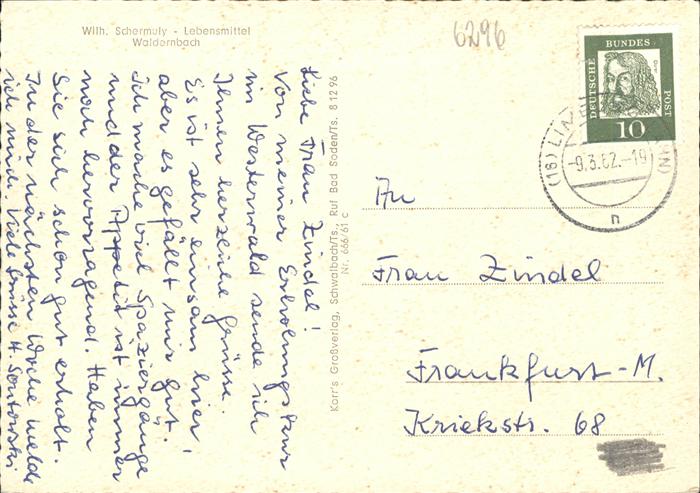 Wilh. Schermuly - Lebensmittel
Waldernbach
6296
DEUTSCHE
BUNDES
POST
10
(16) LIM
-9.3.62.-19
n
Liebe Frau Zindel!
Von meiner Erholungskur
im Westerwald sende ich
Ihnen herzliche Grüsse.
Es ist sehr einsam hier,
aber es gefällt mir gut.
Ich mache viel Spaziergänge
und der Appetit ist immer
noch hervorragend. Haben
Sie sich schon gut erholt.
In der nächsten Woche melde
ich mich. Viele Grüsse H.
Korr's Großverlag, Schwalbach/Ts., Ruf Bad Soden/Ts. 8 12 96
Nr. 666/61 c
An
Frau Zindel
Frankfurt-M.
Kriekstr. 68